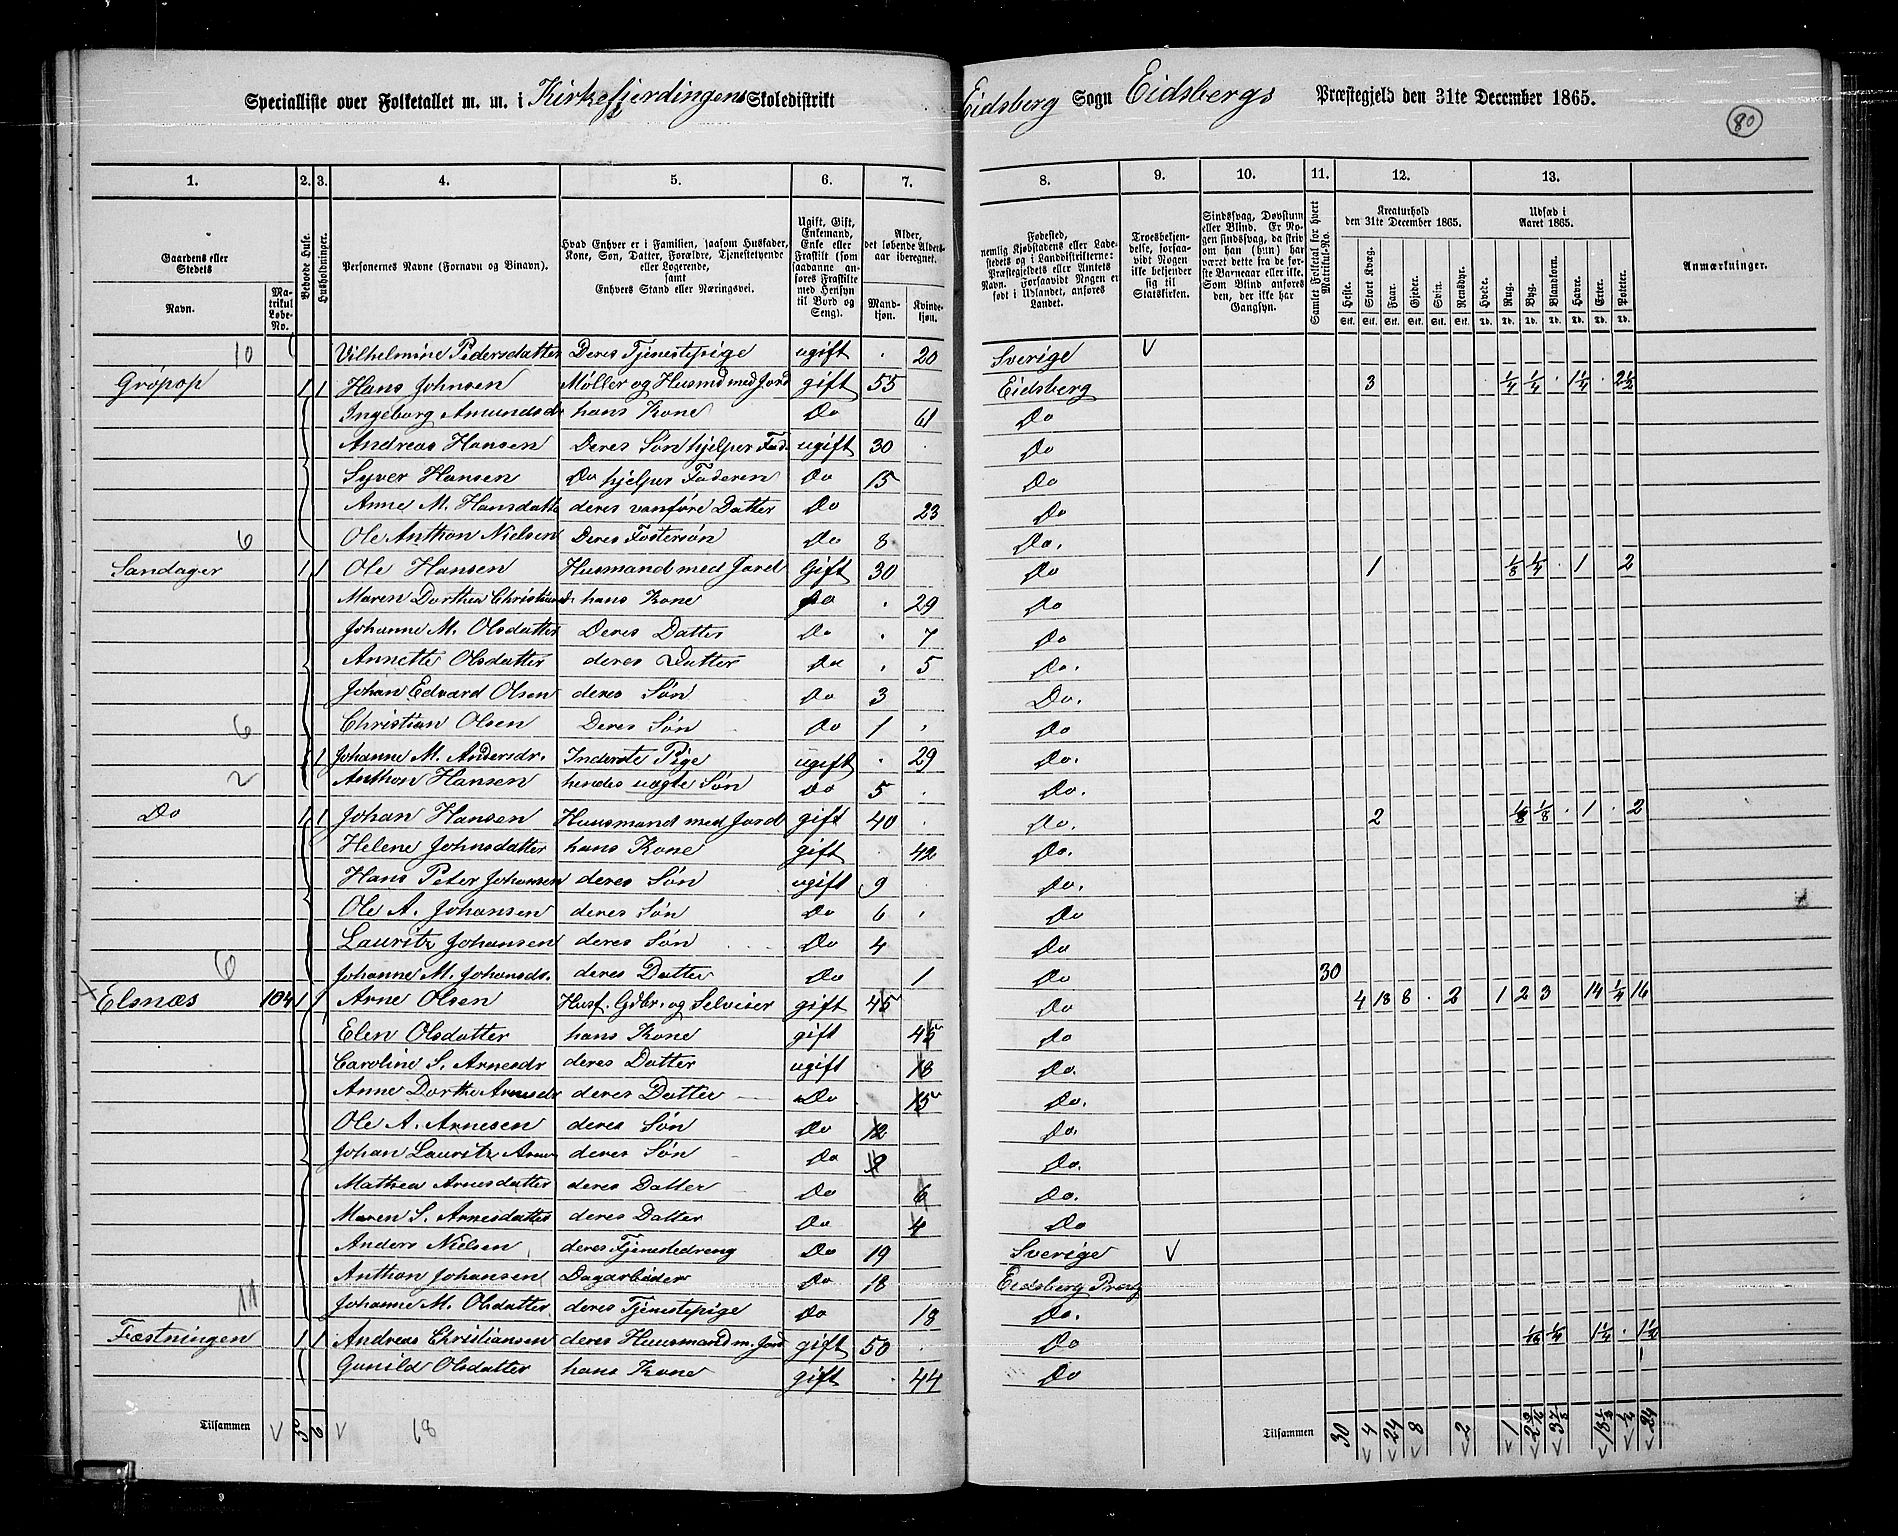 Specialliste over Folketallet m. m. i Kirkefjerdingens Skoledistrikt Eidsberg Sogn Eidsbergs Præstegjeld den 31te December 1865.
80
1. 2. 3. 4. 5. 6. 7. 8. 9. 10. 11. 12. 13.
Gaardens eller Stedets
Navn.
Matrikul Løbe-No.
Beboede Huse.
Husholdninger.
Personernes Navne (Fornavn og Binavn).
Hvad Enhver er i Familien, saasom Husfader, Kone, Søn, Datter, Forældre, Tjenestetyende eller Logerende, samt Enhvers Stand eller Næringsvei.
Ugift, Gift, Enkemand, Enke eller Fraskilt (som saadanne anføres Fraskilte med Hensyn til Bord og Seng).
Alder, det løbende Aldersaar iberegnet.
Mandkjøn.
Kvindekjøn.
Fødested, nemlig Kjøbstadens eller Ladestedets og i Landdistrikterne: Præstegjeldets eller Amtets Navn. Forsaavidt Nogen er født i Udlandet, anføres Landet.
Troesbekjendelse, forsaavidt Nogen ikke bekjender sig til Statskirken.
Sindssvag, Døvstum eller Blind. Er Nogen sindssvag, da skriv om han (hun) har været dette fra de første Barneaar eller ikke. Som Blind anføres den, der ikke har Gangsyn.
Samlet Folketal for hvert Matrikul-No.
Kreaturhold den 31te December 1865.
Heste. Stort Kvæg. Faar. Gjeder. Svin. Rensdyr.
Udsæd i Aaret 1865.
Hvede. Rug. Byg. Blandkorn. Havre. Erter. Poteter.
Anmærkninger.
Stk. Stk. Stk. Stk. Stk. Stk. Td. Td. Td. Td. Td. Td. Td.
10 Vilhelmine Pedersdatter Deres Tjenestepige ugift . 20 Sverige V
Grøpop 1 1 Hans Johnsen Møller og Husmd med Jord gift 55 Eidsberg 3 1/4 1/4 . 1 1/4 . 2 1/2
Ingeborg Amundsdr hans Kone Do 61 Do
Andreas Hansen Deres Søn hjelper Fad. ugift 30 . Do
Syver Hansen Do hjelper Faderen Do 15 Do
Anne M. Hansdatte deres vanføre Datter Do 23 Do
6 Ole Anthon Nielsen Deres Fostersøn Do 8 . Do.
Sandager 1 1 Ole Hansen Husmand med Jord Gift 30 Do 1 1/8 1/4 . 1 . 2
Maren Dorthea Christiansd. hans Kone Do . 29 Do
Johanne M. Olsdatter Deres Datter Do . 7 Do
Annette Olsdatter deres Datter Do . 5 Do.
Johan Edvard Olsen deres Søn Do 3 Do.
6 Christian Olsen Deres Søn Do 1 . Do
1 Johanne M. Andersdr. Inderste Pige ugift . 29 Do.
2 Anthon Hansen hendes uægte Søn Do 5 . Do.
Do 1 1 Johan Hansen Huusmand med Jord gift 40 . Do. 2 1/8 1/8 . 1 . 2
Helene Johnsdatter hans Kone gift . 42 Do.
Hans Peter Johansen deres Søn ugift 9 . Do.
Ole A. Johansen deres Søn Do 6 . Do
Lauritz Johansen deres Søn Do 4 Do
6 Johanne M. Johansdr. deres Datter Do 1 Do 30
Elsnæs 104 1 1 Arne Olsen Husf. Gdbr. og Selveier gift 45 Do 4 18 8 . 2 1 2 3 14 1/4 16
Elen Olsdatter hans Kone gift 45 Do
Caroline S. Arnesdr deres Datter ugift . 18 Do.
Anne Dorthe Arnesdr deres Datter Do . 15 Do.
Ole A. Arnesen deres Søn Do 12 Do.
Johan Lauritz Arnes deres Søn Do 9 Do.
Mathea Arnesdatter deres Datter Do 6 Do.
Maren S. Arnesdatter deres Datter Do 4 Do
Anders Nielsen deres Tjenestedreng Do 19 Sverige V
Anthon Johansen Dagarbeider Do 18 Eidsberg Præstg
11 Johanne M. Olsdatter. deres Tjenestepige Do 18 Do.
Fæstningen 1 1 Andreas Christiansen deres Huusmand m. Jord gift 50 . Do 1/16 1/4 1 1/4 . 1 1/2
Gunild Olsdatter hans Kone gift . 44 Do
Tilsammen V 5 6 V 68 Tilsammen 30 4 24 8 2 1 2 9/16 3 7/8 18 1/2 24